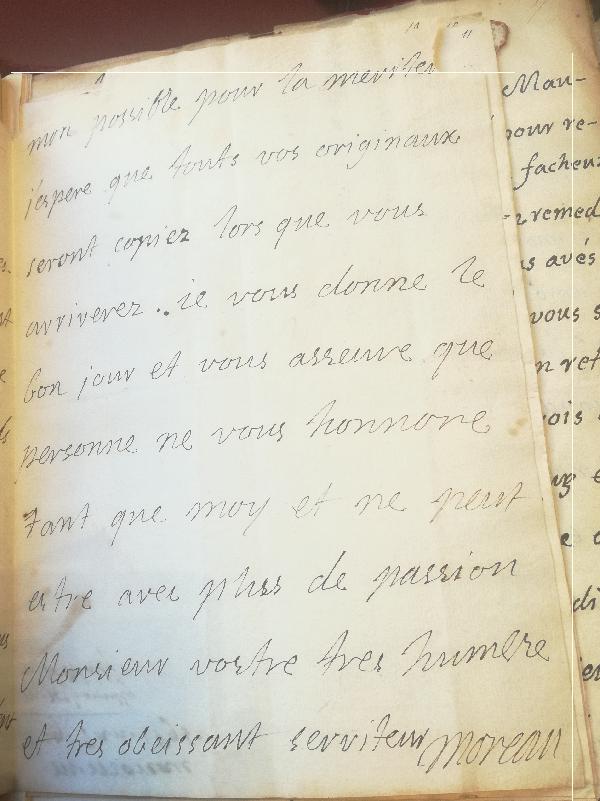 mon possible pour la meriter
j'espere que touts vos originaux
seront copiez lors que vous
arriverez .. ie vous donne le
bon jour et vous asseure que
personne ne vous honnore
tant que moy et ne peut
estre avec pluss de passion
Monsieur vostre tres humble
et tres obeissant serviteur Moreau
Mau-
pour re-
facheux
remed
us avés
vous s
n ret
vois
di